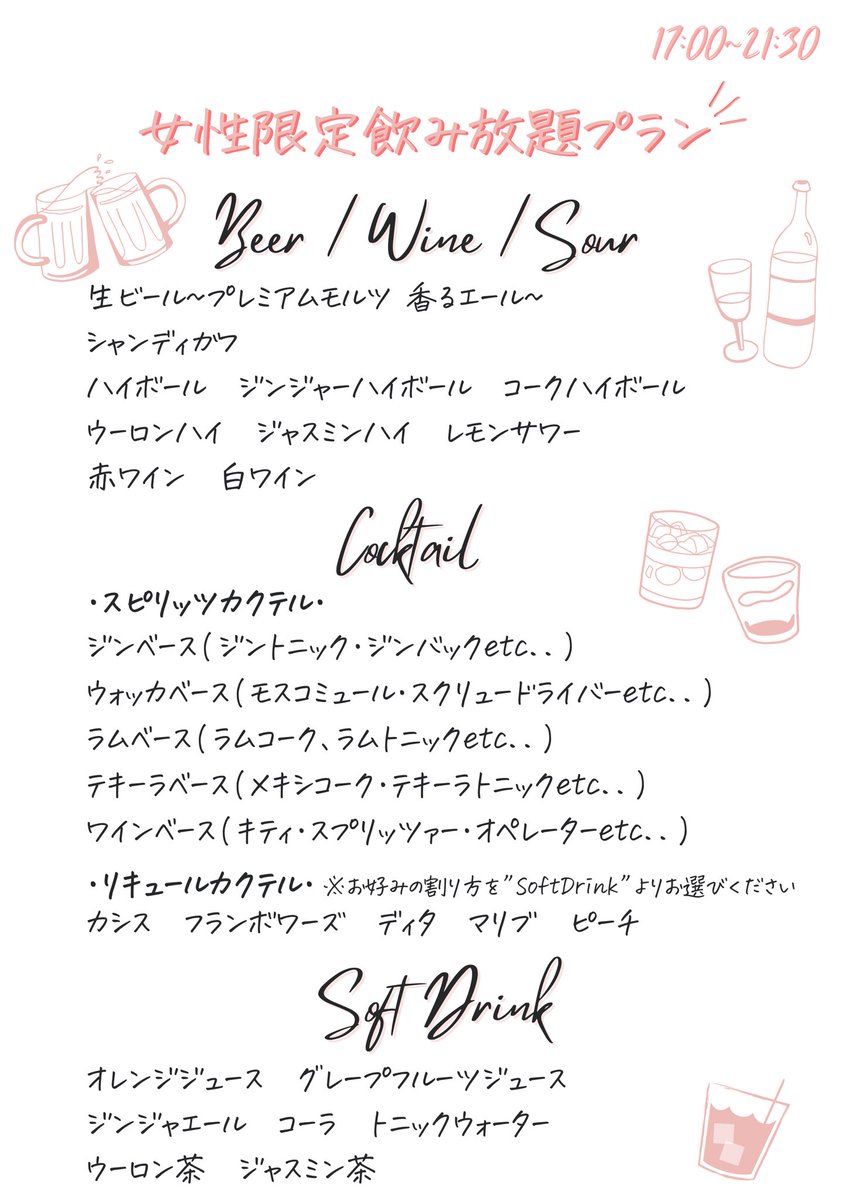 17:00~21:30
女性限定飲み放題プラン
Beer / Wine / Sour
生ビール~プレミアムモルツ 香るエール~
シャンディガフ
ハイボール ジンジャーハイボール コークハイボール
ウーロンハイ ジャスミンハイ レモンサワー
赤ワイン 白ワイン
Cocktail
・スピリッツカクテル・
ジンベース(ジントニック・ジンバックetc..)
ウォッカベース(モスコミュール・スクリュードライバーetc..)
ラムベース(ラムコーク、ラムトニックetc..)
テキーラベース(メキシコーク・テキーラトニックetc..)
ワインベース(キティ・スプリッツァー・オペレーターetc..)
・リキュールカクテル・ ※お好みの割り方を"SoftDrink"よりお選びください
カシス フランボワーズ ディタ マリブ ピーチ
Soft Drink
オレンジジュース グレープフルーツジュース
ジンジャエール コーラ トニックウォーター
ウーロン茶 ジャスミン茶